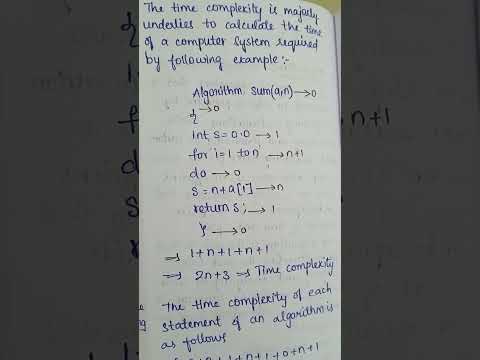 The time complexity is majorly
underlies to calculate the time
of a computer system required
by following example :-
Algorithm sum(a,n) → 0
{ → 0
int s = 0.0 → 1
for i=1 to n → n+1
do → 0
s = n + a[i] → n
return s; → 1
} → 0
⇒ 1+n+1+n+1
⇒ 2n+3 ⇒ Time complexity
The time complexity of each
statement of an algorithm is
as follows